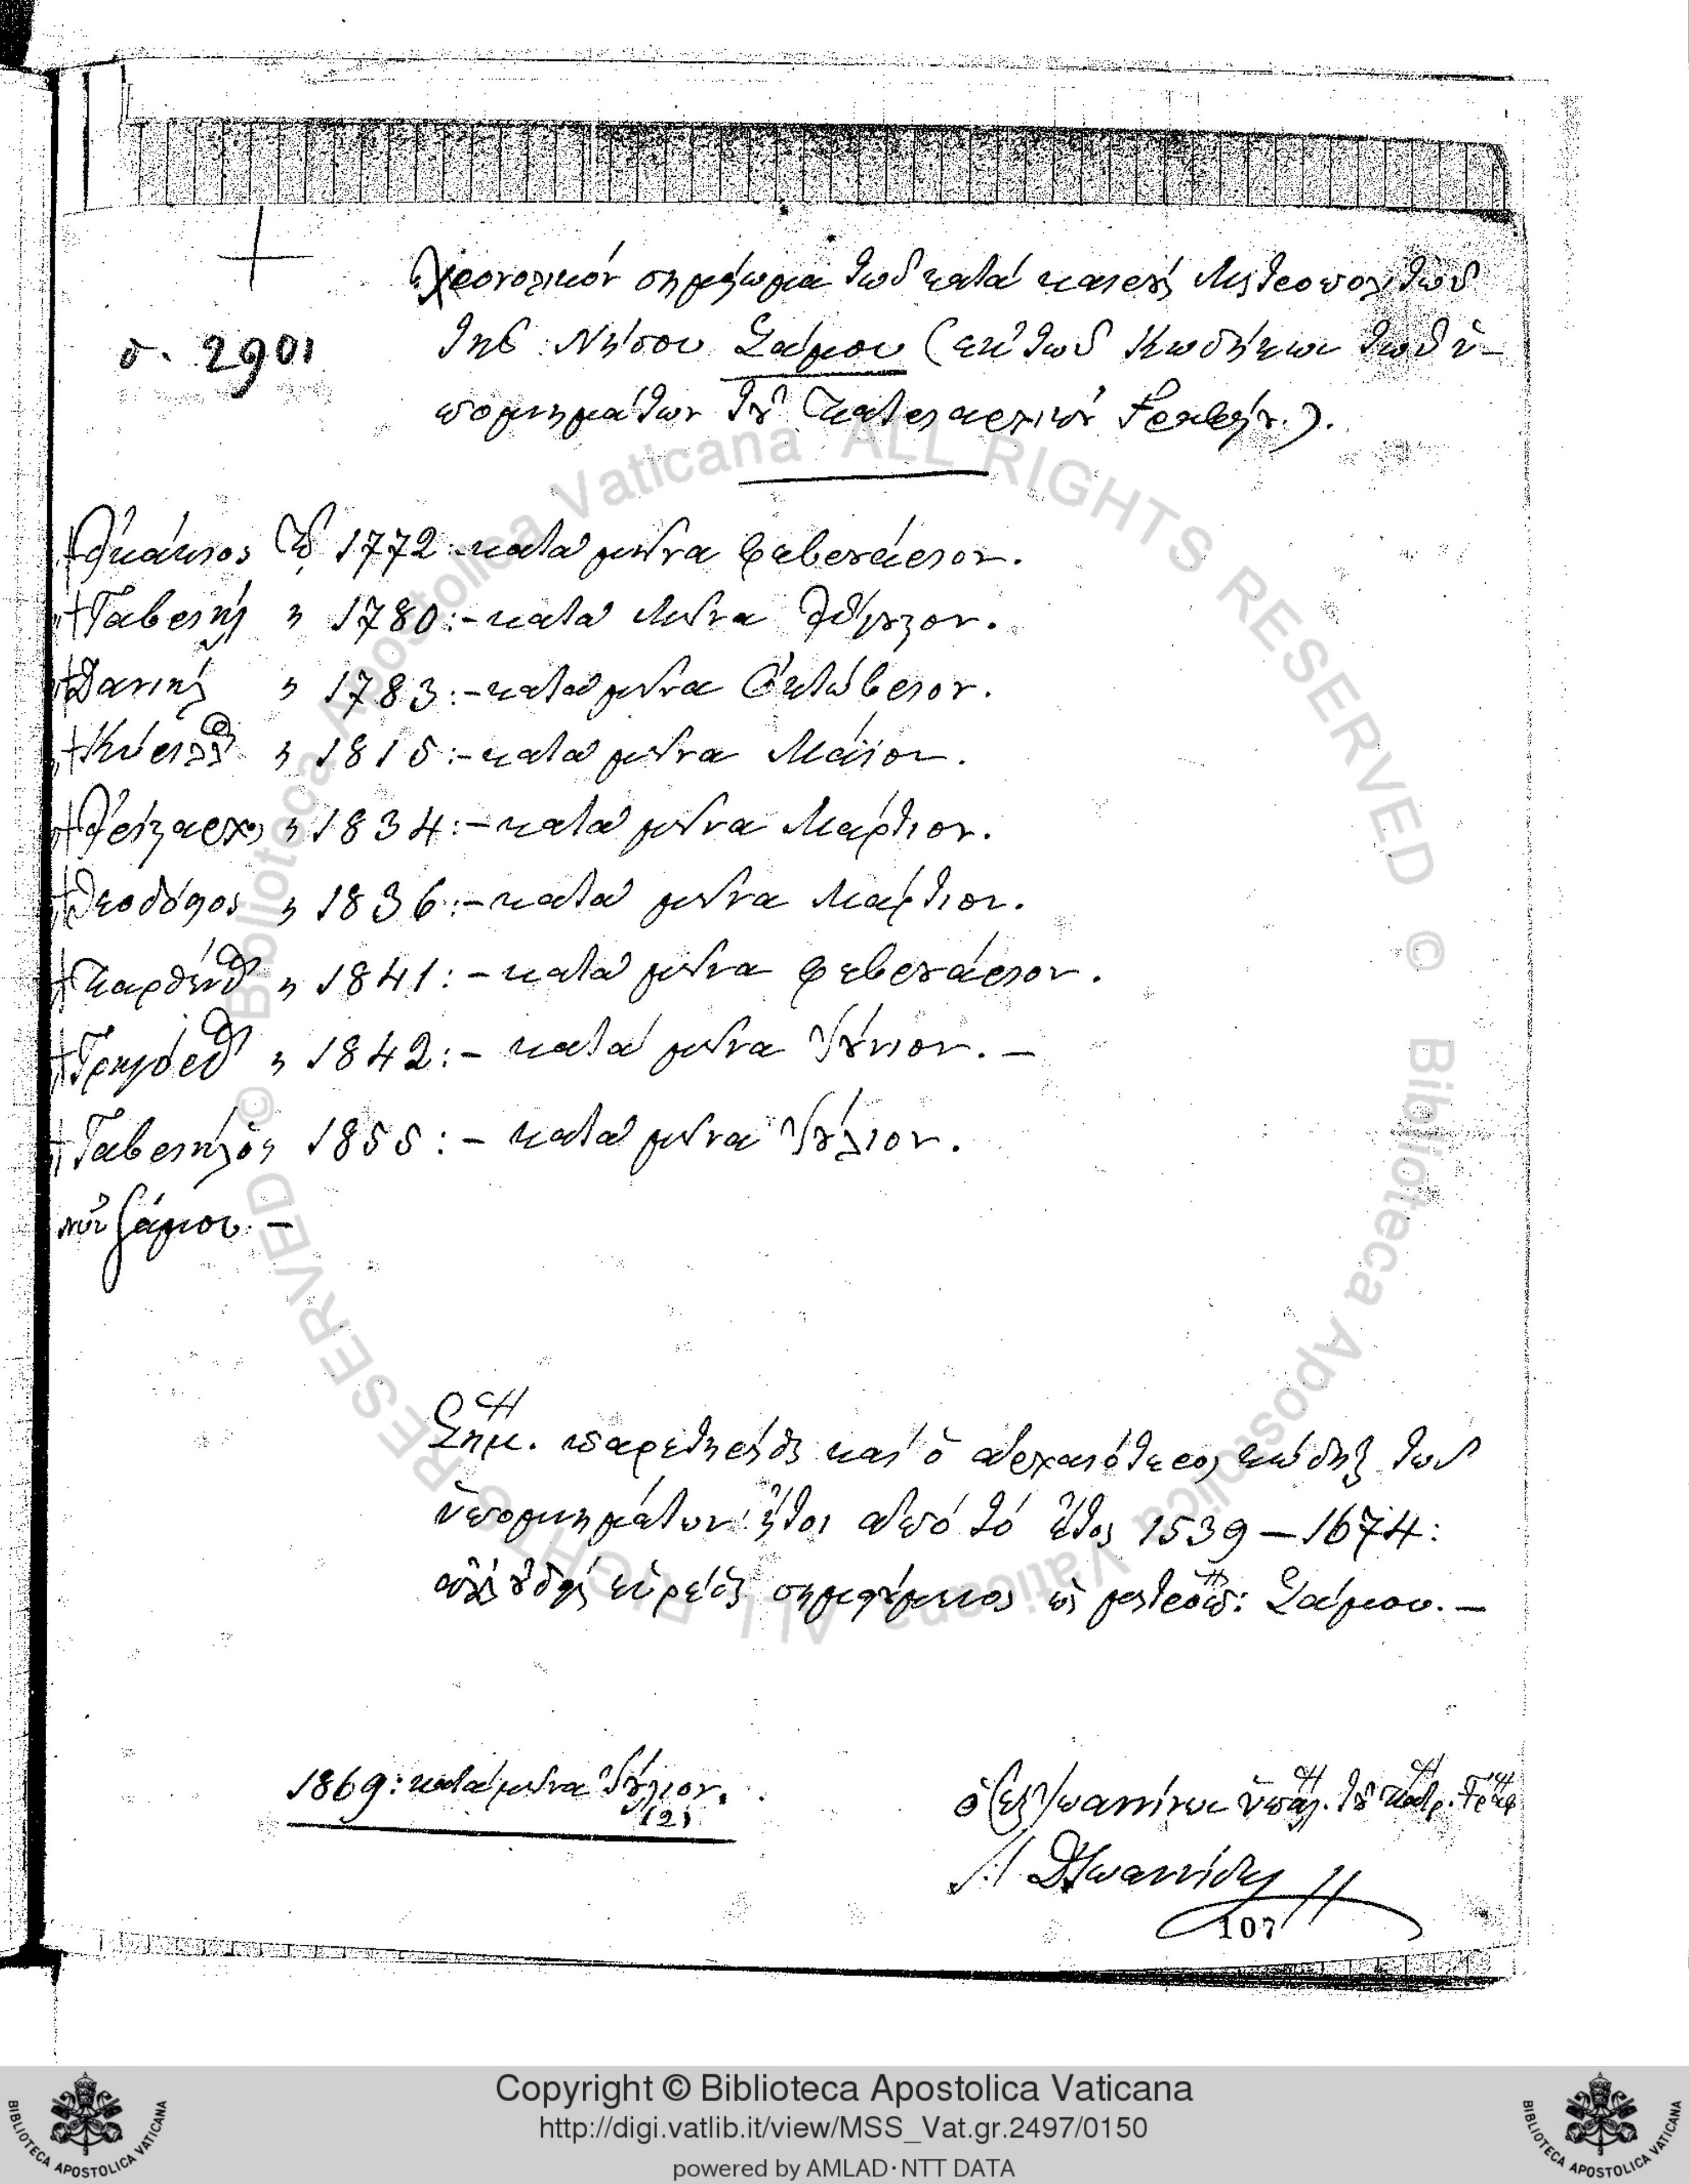 +
σ. 2901
Χρονολικόν σημείωμα τῶν κατὰ καιροὺς Μητροπολιτῶν
τῆς Νήσου Σάμου (ἐκ τῶν Κωδήκων τῶν ὑ-
πομνημάτων τοῦ Πατριαρχικοῦ Γραφείου).
+ Ἀκάκιος τῷ 1772:- κατὰ μῆνα Φεβρουάριον.
+ Γαβριὴλ " 1780:- κατὰ Μῆνα Αὔγουστον.
+ Δανιὴλ " 1783:- κατὰ μῆνα Ὀκτώβριον.
+ Κύριλλος " 1815:- κατὰ μῆνα Μάϊον.
+ Ἀρίσταρχος " 1834:- κατὰ μῆνα Μάρτιον.
+ Θεοδόσιος " 1836:- κατὰ μῆνα Μάρτιον.
+ Παρθένιος " 1841:- κατὰ μῆνα Φεβρουάριον.
+ Γρηγόριος " 1842:- κατὰ μῆνα Ἰούνιον. -
+ Γαβριὴλ ὁ " 1855:- κατὰ μῆνα Ἰούλιον.
νῦν Σάμου. -
Σημ. παρετηρήθη καὶ ὁ ἀρχαιότερος κώδηξ τῶν
ὑπομνημάτων ἤτοι ἀπὸ τὸ ἔτος 1539 - 1674:
ἀλλ' οὐδεὶς εὑρέθη σημειούμενος ὡς μητροπ: Σάμου. -
1869: κατὰ μῆνα Ἰούλιον.
(2)
ὁ ἐξ Ἰωαννίνων ὑπάλ. τοῦ Πατρ. Γραφ
Δ Ἰωαννίδης
107
Copyright © Biblioteca Apostolica Vaticana
http://digi.vatlib.it/view/MSS_Vat.gr.2497/0150
powered by AMLAD·NTT DATA
BIBLIOTECA APOSTOLICA VATICANA
BIBLIOTECA APOSTOLICA VATICANA
© Biblioteca Apostolica Vaticana ALL RIGHTS RESERVED
© Biblioteca Apostolica Vaticana ALL RIGHTS RESERVED